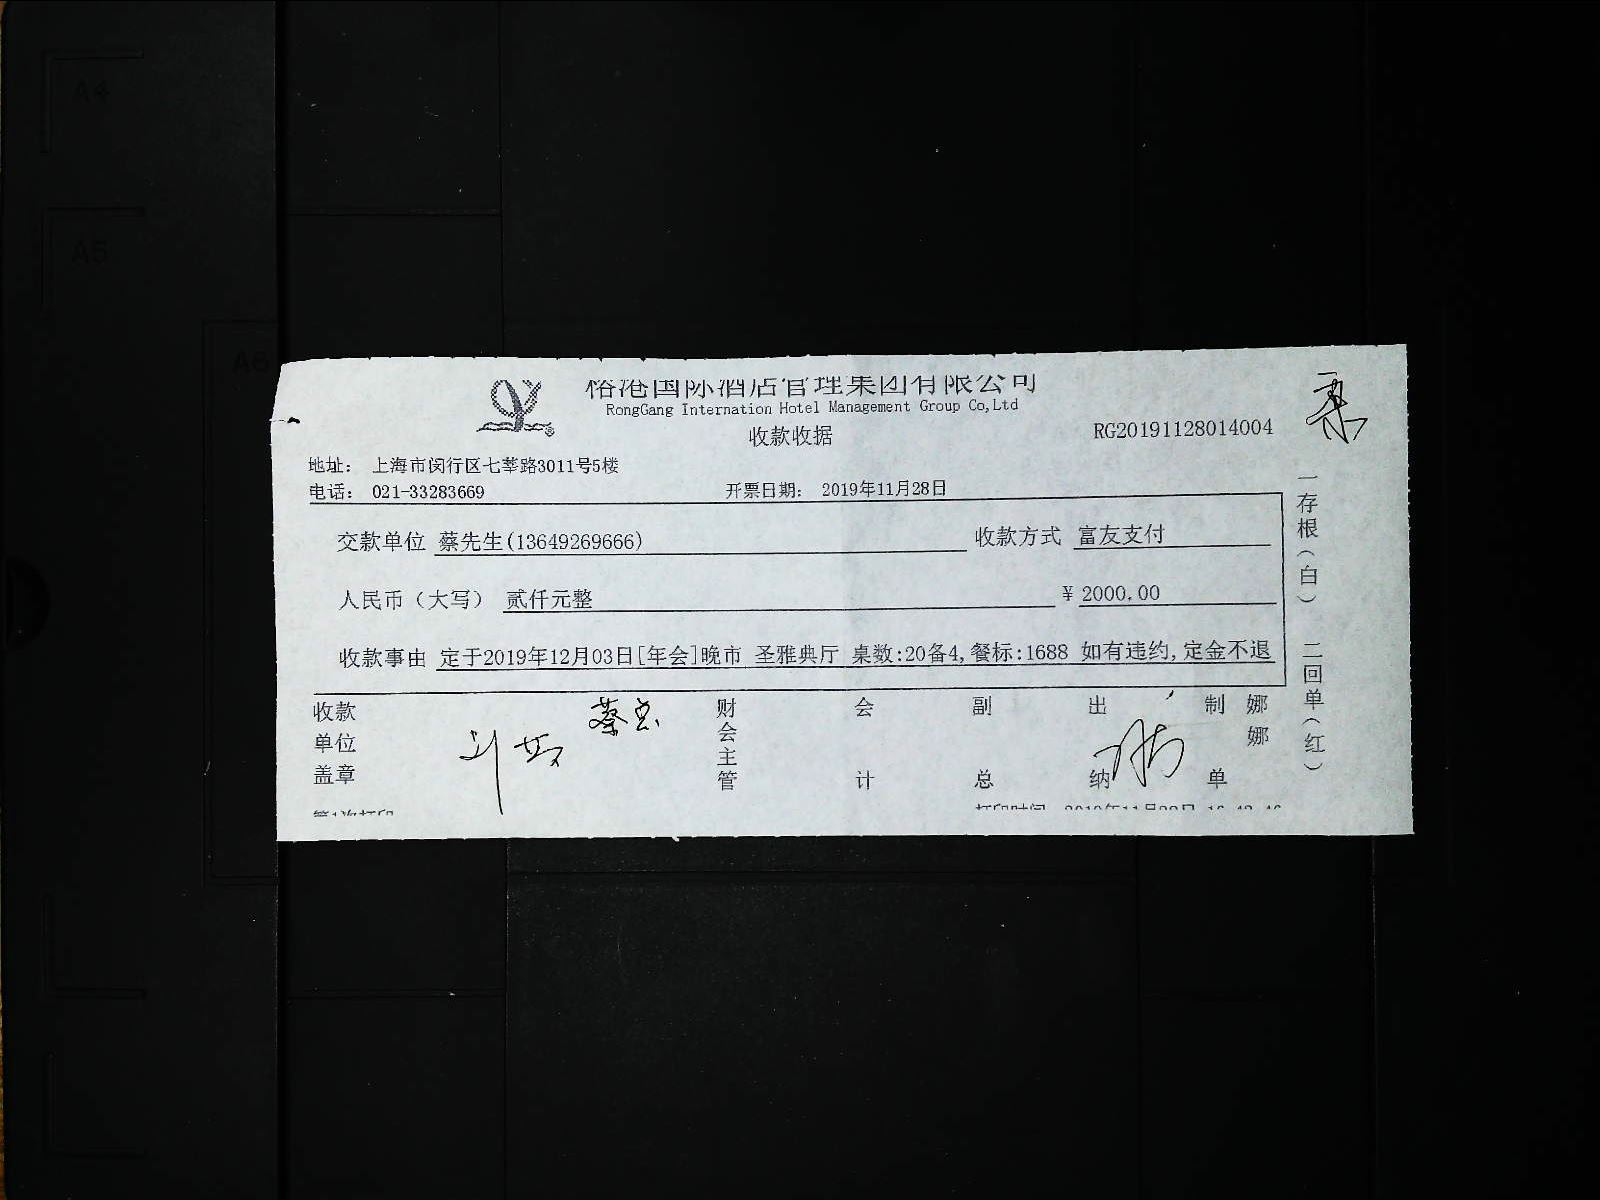 A4
A5
A6
国际酒店管理集团有限公司
RongGang Internation Hotel Management Group Co,Ltd
收款收据
RG20191128014004
地址： 上海市闵行区七莘路3011号5楼
电话： 021-33283669 开票日期： 2019年11月28日
交款单位 蔡先生(13649269666) 收款方式 富友支付
人民币（大写） 贰仟元整 ¥ 2000.00
收款事由 定于2019年12月03日[年会]晚市 圣雅典厅 桌数:20备4,餐标:1688 如有违约,定金不退
收款单位盖章 蔡 财会主管 会计 副总 出纳 制单 娜娜
第1次打印 打印时间 2019年11月28日
一存根（白） 二回单（红）